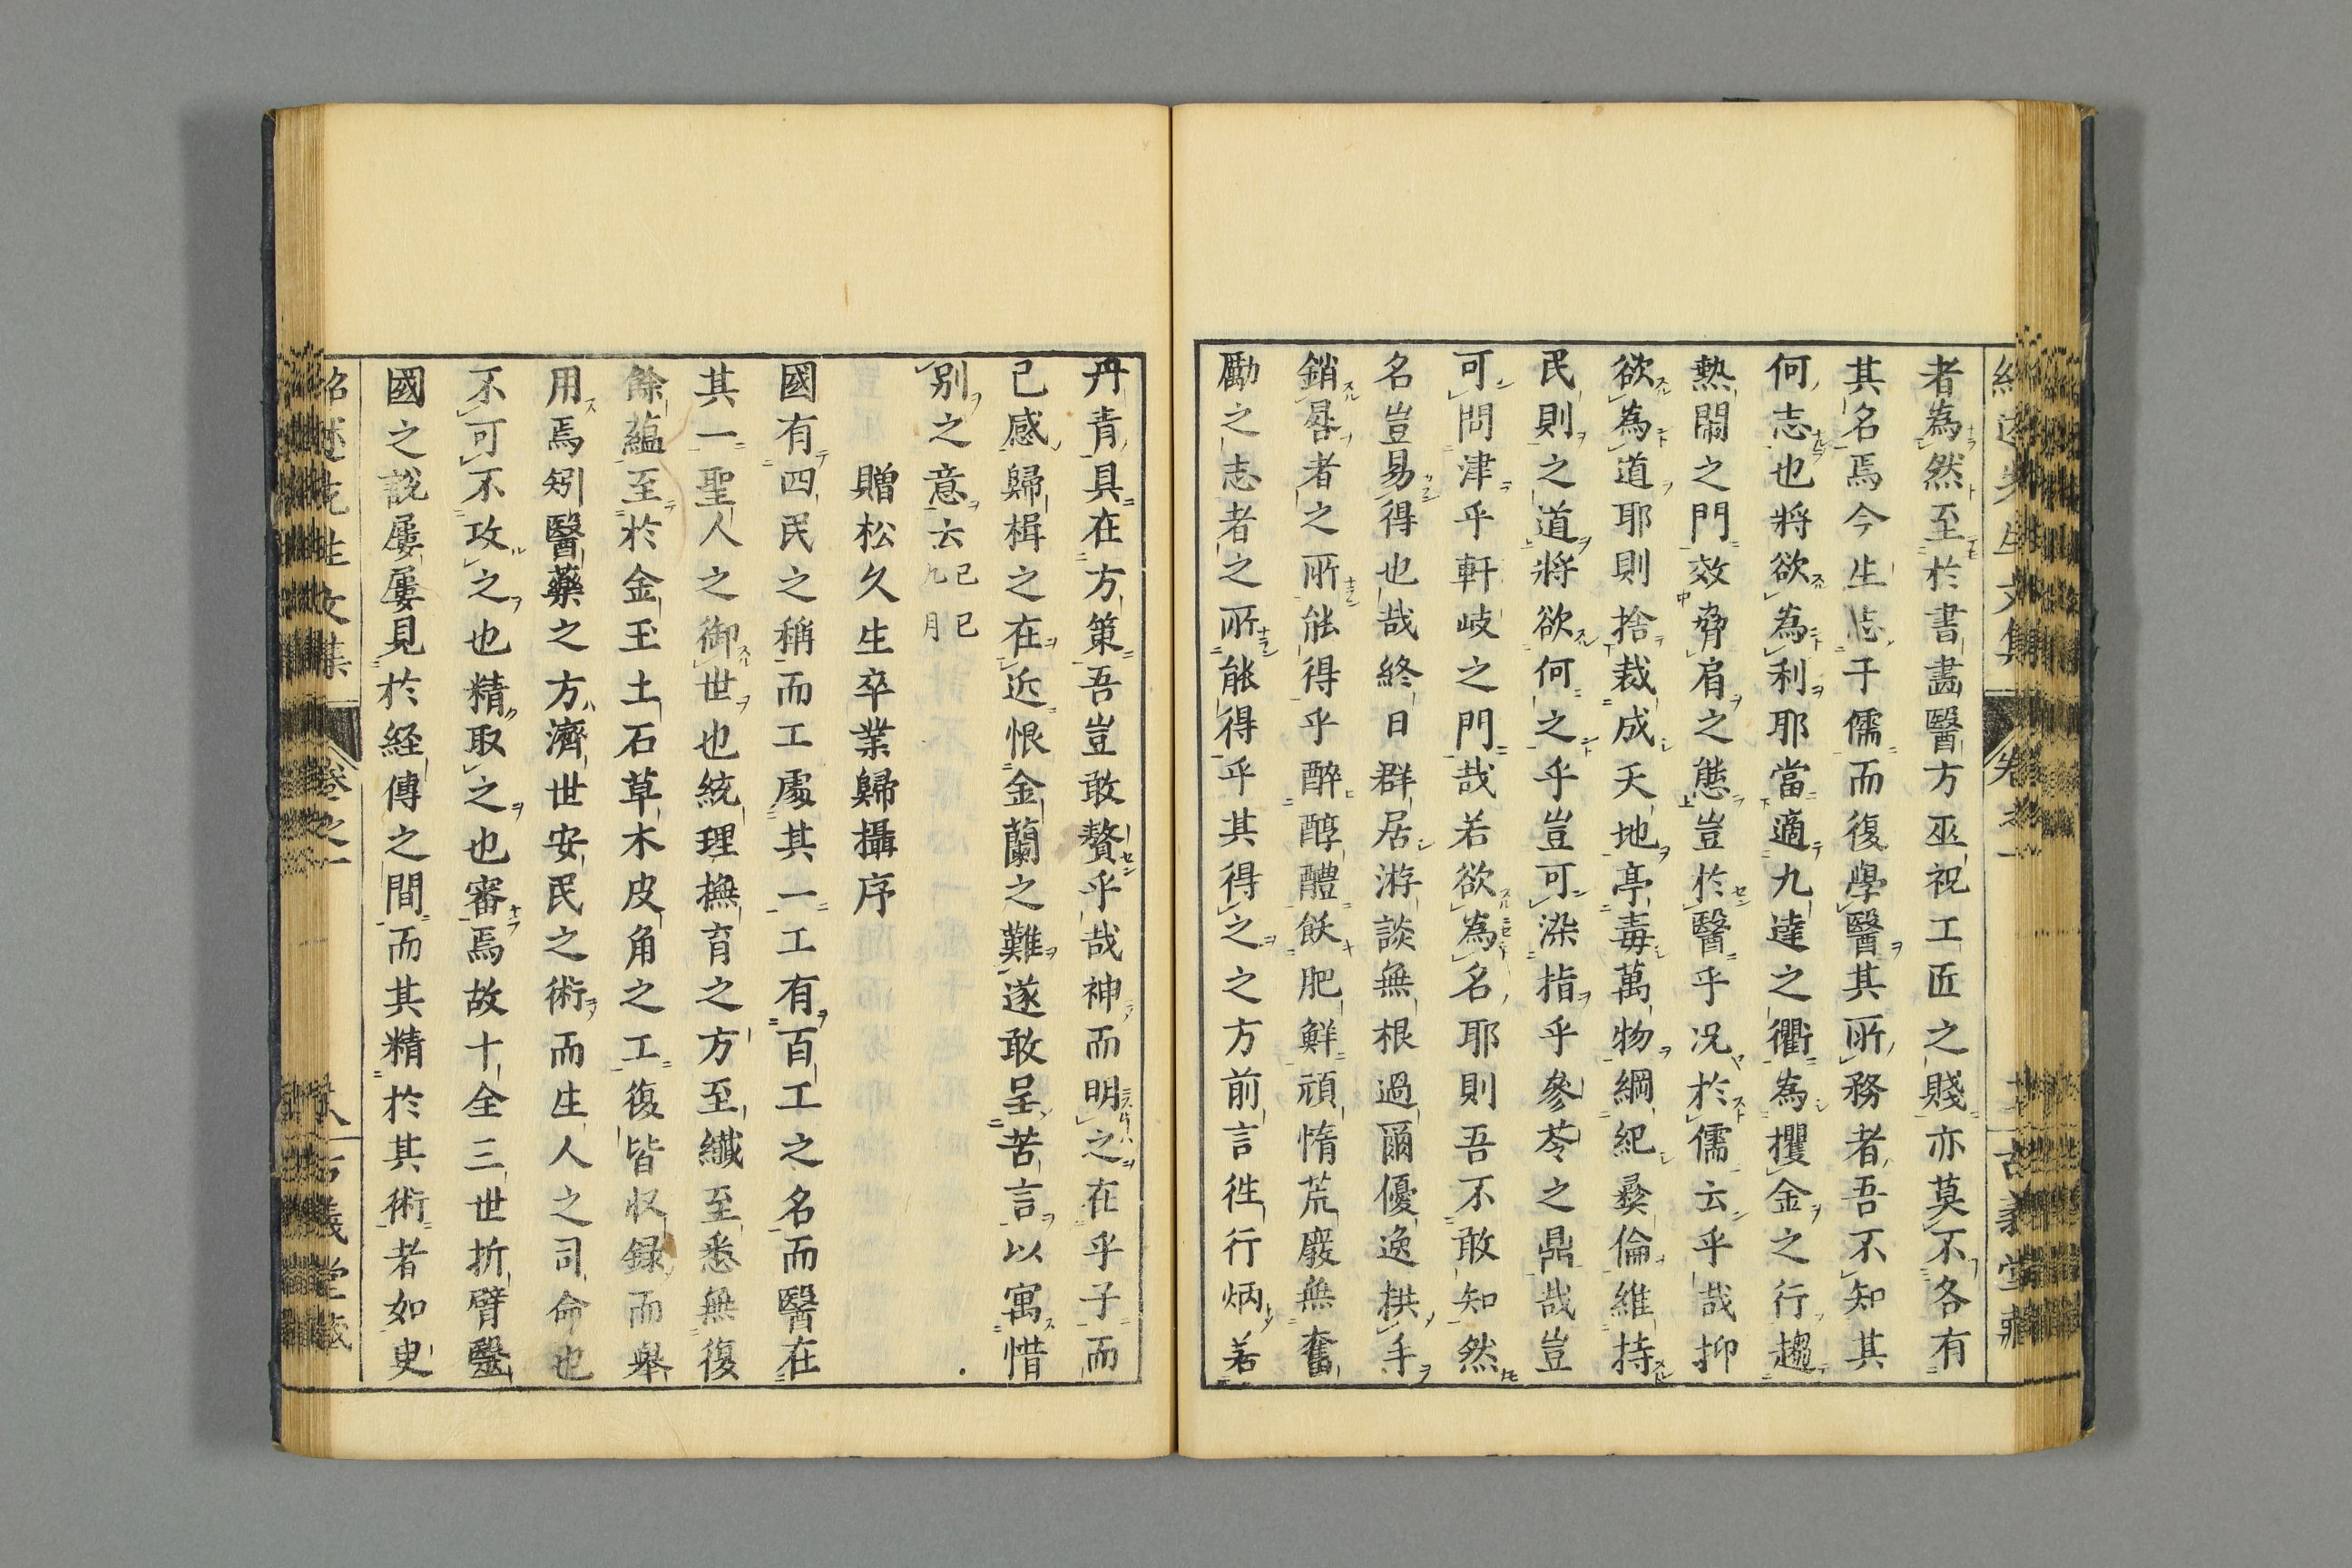 者為然至於書畵醫方巫祝工匠之賤亦莫不各有
其名焉今生志于儒而復學醫其所務者吾不知其
何志也將欲為利耶當適九達之衢為攫金之行趨
熱閙之門效脅肩之態豈於醫乎况於儒云乎哉抑
欲為道耶則捨裁成天地亭毒萬物綱紀彛倫維持
民則之道將欲何之乎豈可染指乎參苓之鼎哉豈
可問津乎軒岐之門哉若欲為名耶則吾不敢知然
名豈易得也哉終日群居游談無根過爾優逸拱手
銷晷者之所能得乎醉醇醴飫肥鮮頑惰荒廢無奮
勵之志者之所能得乎其得之之方前言徃行炳若
丹青具在方策吾豈敢贅乎哉神而明之在乎子而
已感歸楫之在近恨金蘭之難遂敢呈苦言以寓惜
別之意云己巳九月
贈松久生卒業歸攝序
國有四民之稱而工處其一工有百工之名而醫在
其一聖人之御世也統理撫育之方至纎至悉無復
餘蘊至於金玉土石草木皮角之工復皆収録而舉
用焉矧醫藥之方濟世安民之術而生人之司命也
不可不攻之也精取之也審焉故十全三世折臂毉
國之說屢屢見於経傳之間而其精於其術者如史